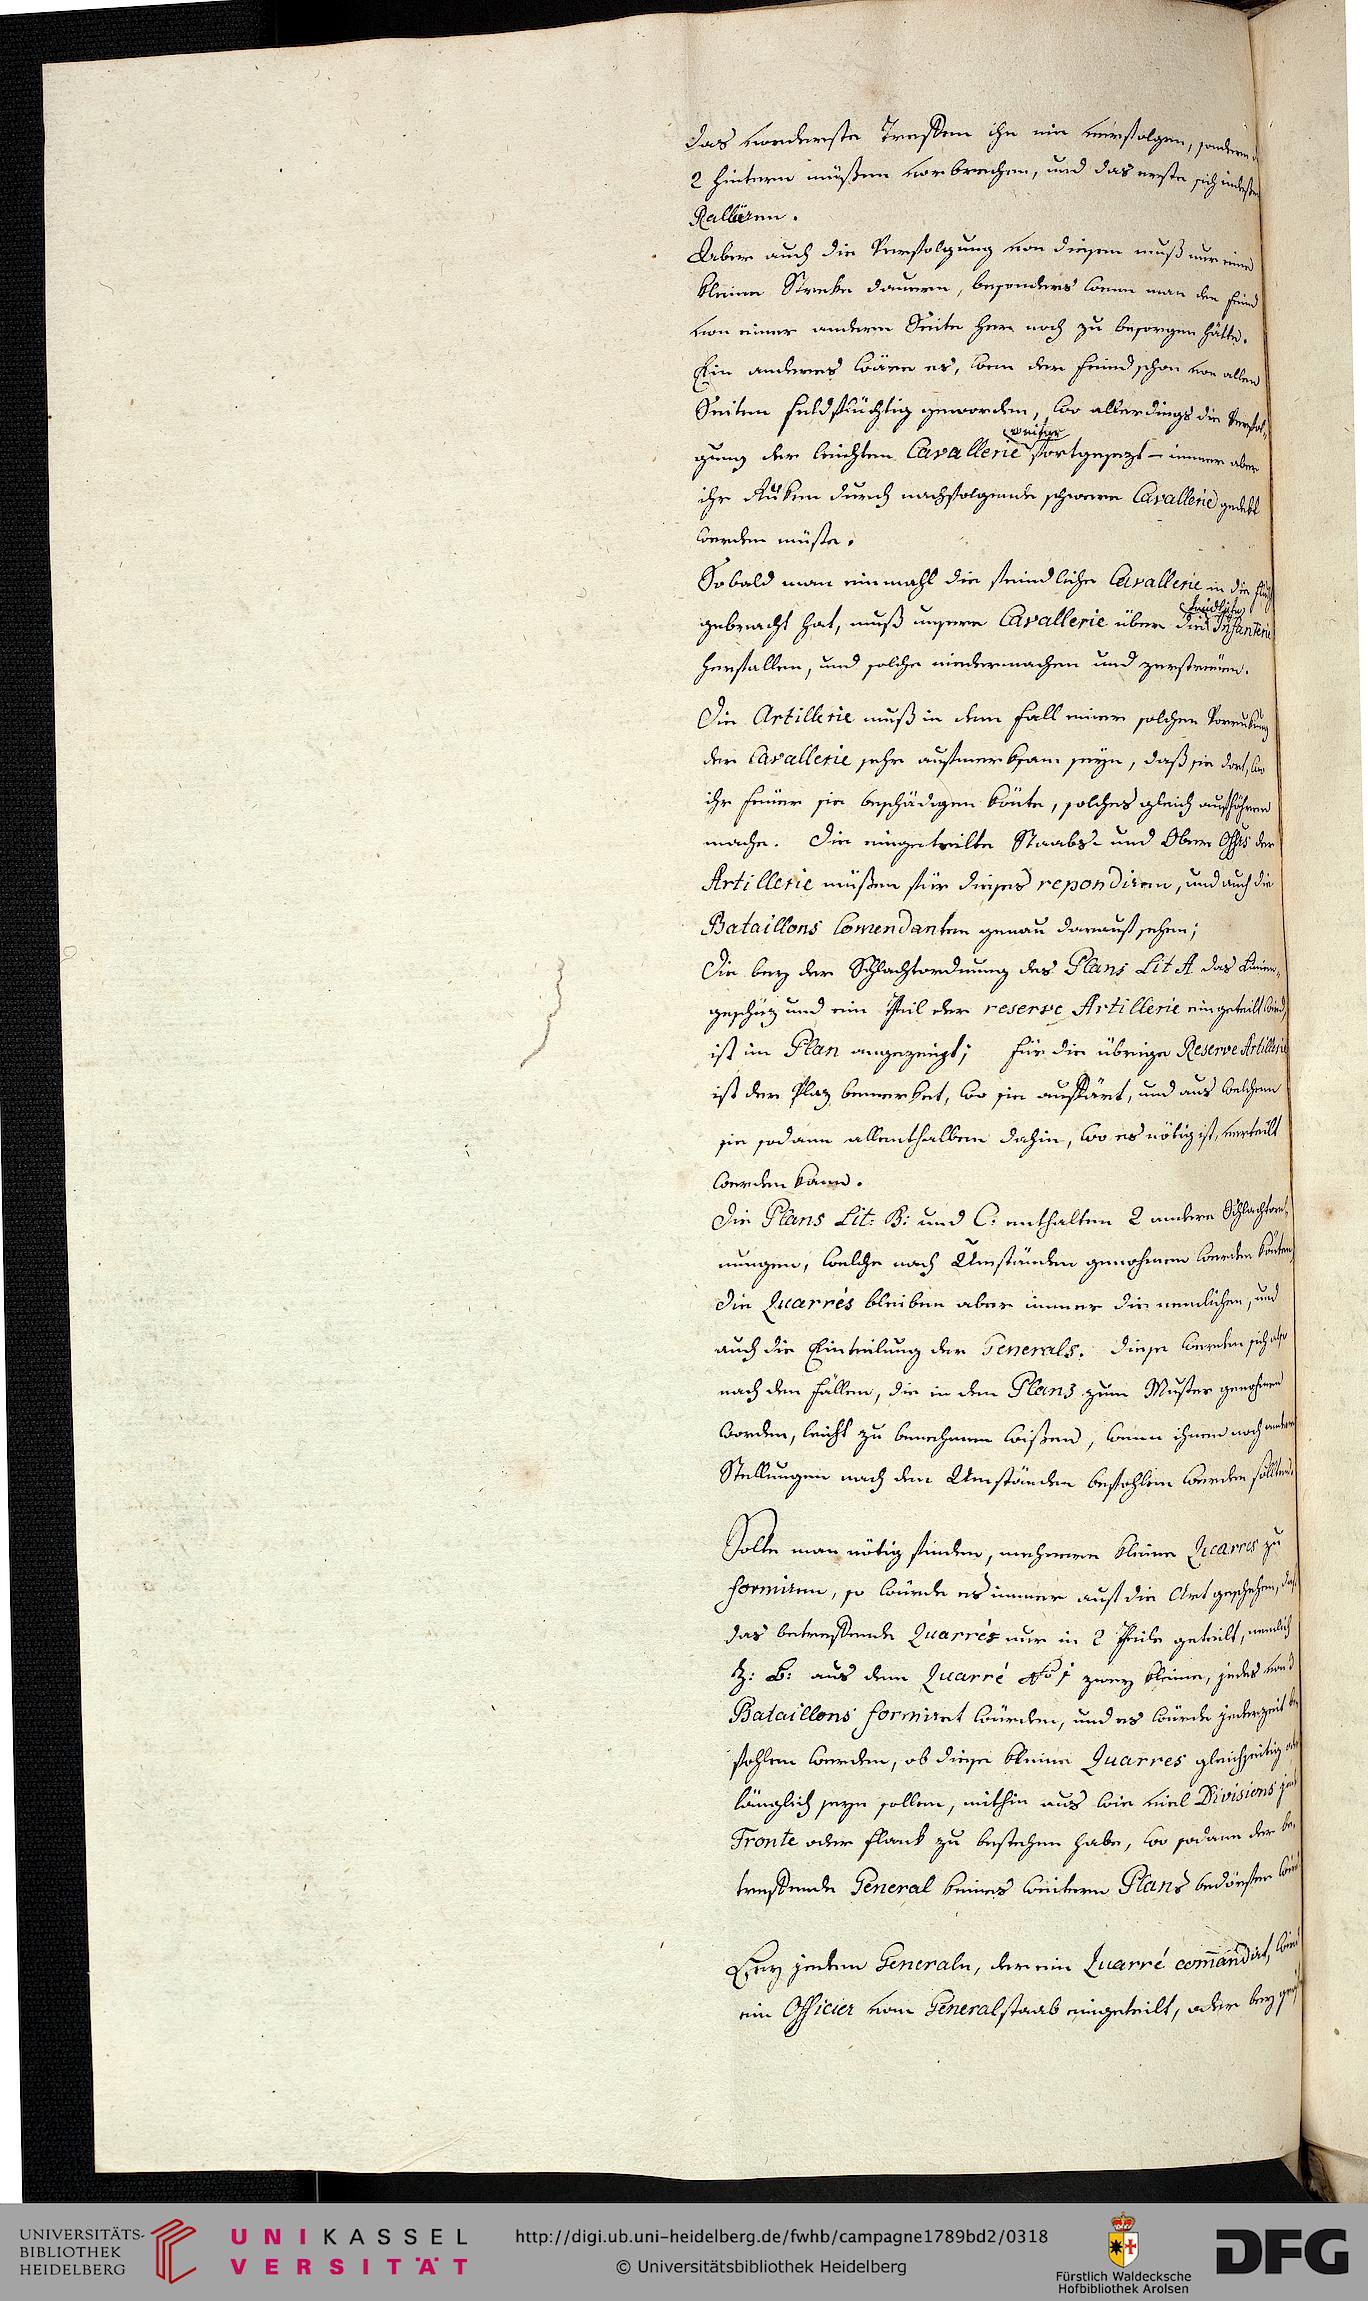 das vorderste Treffen ihn nie verfolgen, sondern
2 hintern müßen vorbrechen, und das erste sich indeßen
Ralliren.
Aber auch die Verfolgung von diesem muß nur eine
kleine Streke dauern, besonders wenn man den Feind
von einer andern Seite her noch zu besorgen hätte.
Ein anderes wäre es, wenn der Feind schon von allen
Seiten feldflüchtig geworden, wo allerdings die Verfol-
gung der leichten Cavallerie weiter fortgesezt – immer aber
ihr Rüken durch nachfolgende schwere Cavallerie gedekt
werden müste.
Sobald man einmahl die feindliche Cavallerie in die Flucht
gebracht hat, muß unsere Cavallerie über die feindliche Infanterie
herfallen, und solche niedermachen und zerstreuen.
Die Artillerie muß in dem Fall einer solchen Vorrukung
der Cavallerie sehr aufmerksam seyn, daß sie dort, wo
ihr Feuer sie beschädigen könte, solches gleich aufhören
mache. Die eingeteilte Staabs- und Ober Offrs der
Artillerie müßen für dieses repondiren, und auch die
Bataillons Comendanten genau darauf sehen;
Die bey der Schlachtordnung des Plans Lit A das Linien-
geschüz und ein Theil der reserve Artillerie eingeteilt wird,
ist im Plan angezeigt; Für die übrige Reserve Artillerie
ist der Plaz bemerket, wo sie auffärt, und aus welchem
sie sodann allenthalben dahin, wo es nötig ist, verteilt
werden kann.
Die Plans Lit: B: und C: enthalten 2 andere Schlachtord-
nungen, welche nach Umständen genohmen werden könten,
die Quarrés bleiben aber immer die nemlichen, und
auch die Einteilung der Generals. Diese werden sich also
nach den Fällen, die in den Plans zum Muster genohmen
worden, leicht zu benehmen wißen, wenn ihnen noch andere
Stellungen nach den Umständen befohlen werden sollten.
Solte man nötig finden, mehrere kleine Quarres zu
formiren, so würde es immer auf die Art geschehen, daß
das betreffende Quarrés nur in 2 Theile geteilt, nemlich
z: B: aus dem Quarré No 1 zwey kleine, jedes von 3
Bataillons formiret würden, und es würde jederzeit be-
fohlen werden, ob diese kleine Quarres gleichseitig oder
länglich seyn sollen, mithin aus wie viel Divisions jede
Fronte oder Flank zu bestehen habe, wo sodann der be-
treffende General keines weitern Plans bedörfen wird
Bey jedem Generaln, der ein Quarré commandirt, wird
ein Officier vom Generalstaab eingeteilt, oder bey
UNIVERSITÄTS-
BIBLIOTHEK
HEIDELBERG
UNIKASSEL
VERSITÄT
http://digi.ub.uni-heidelberg.de/fwhb/campagne1789bd2/0318
© Universitätsbibliothek Heidelberg
Fürstlich Waldecksche
Hofbibliothek Arolsen
DFG